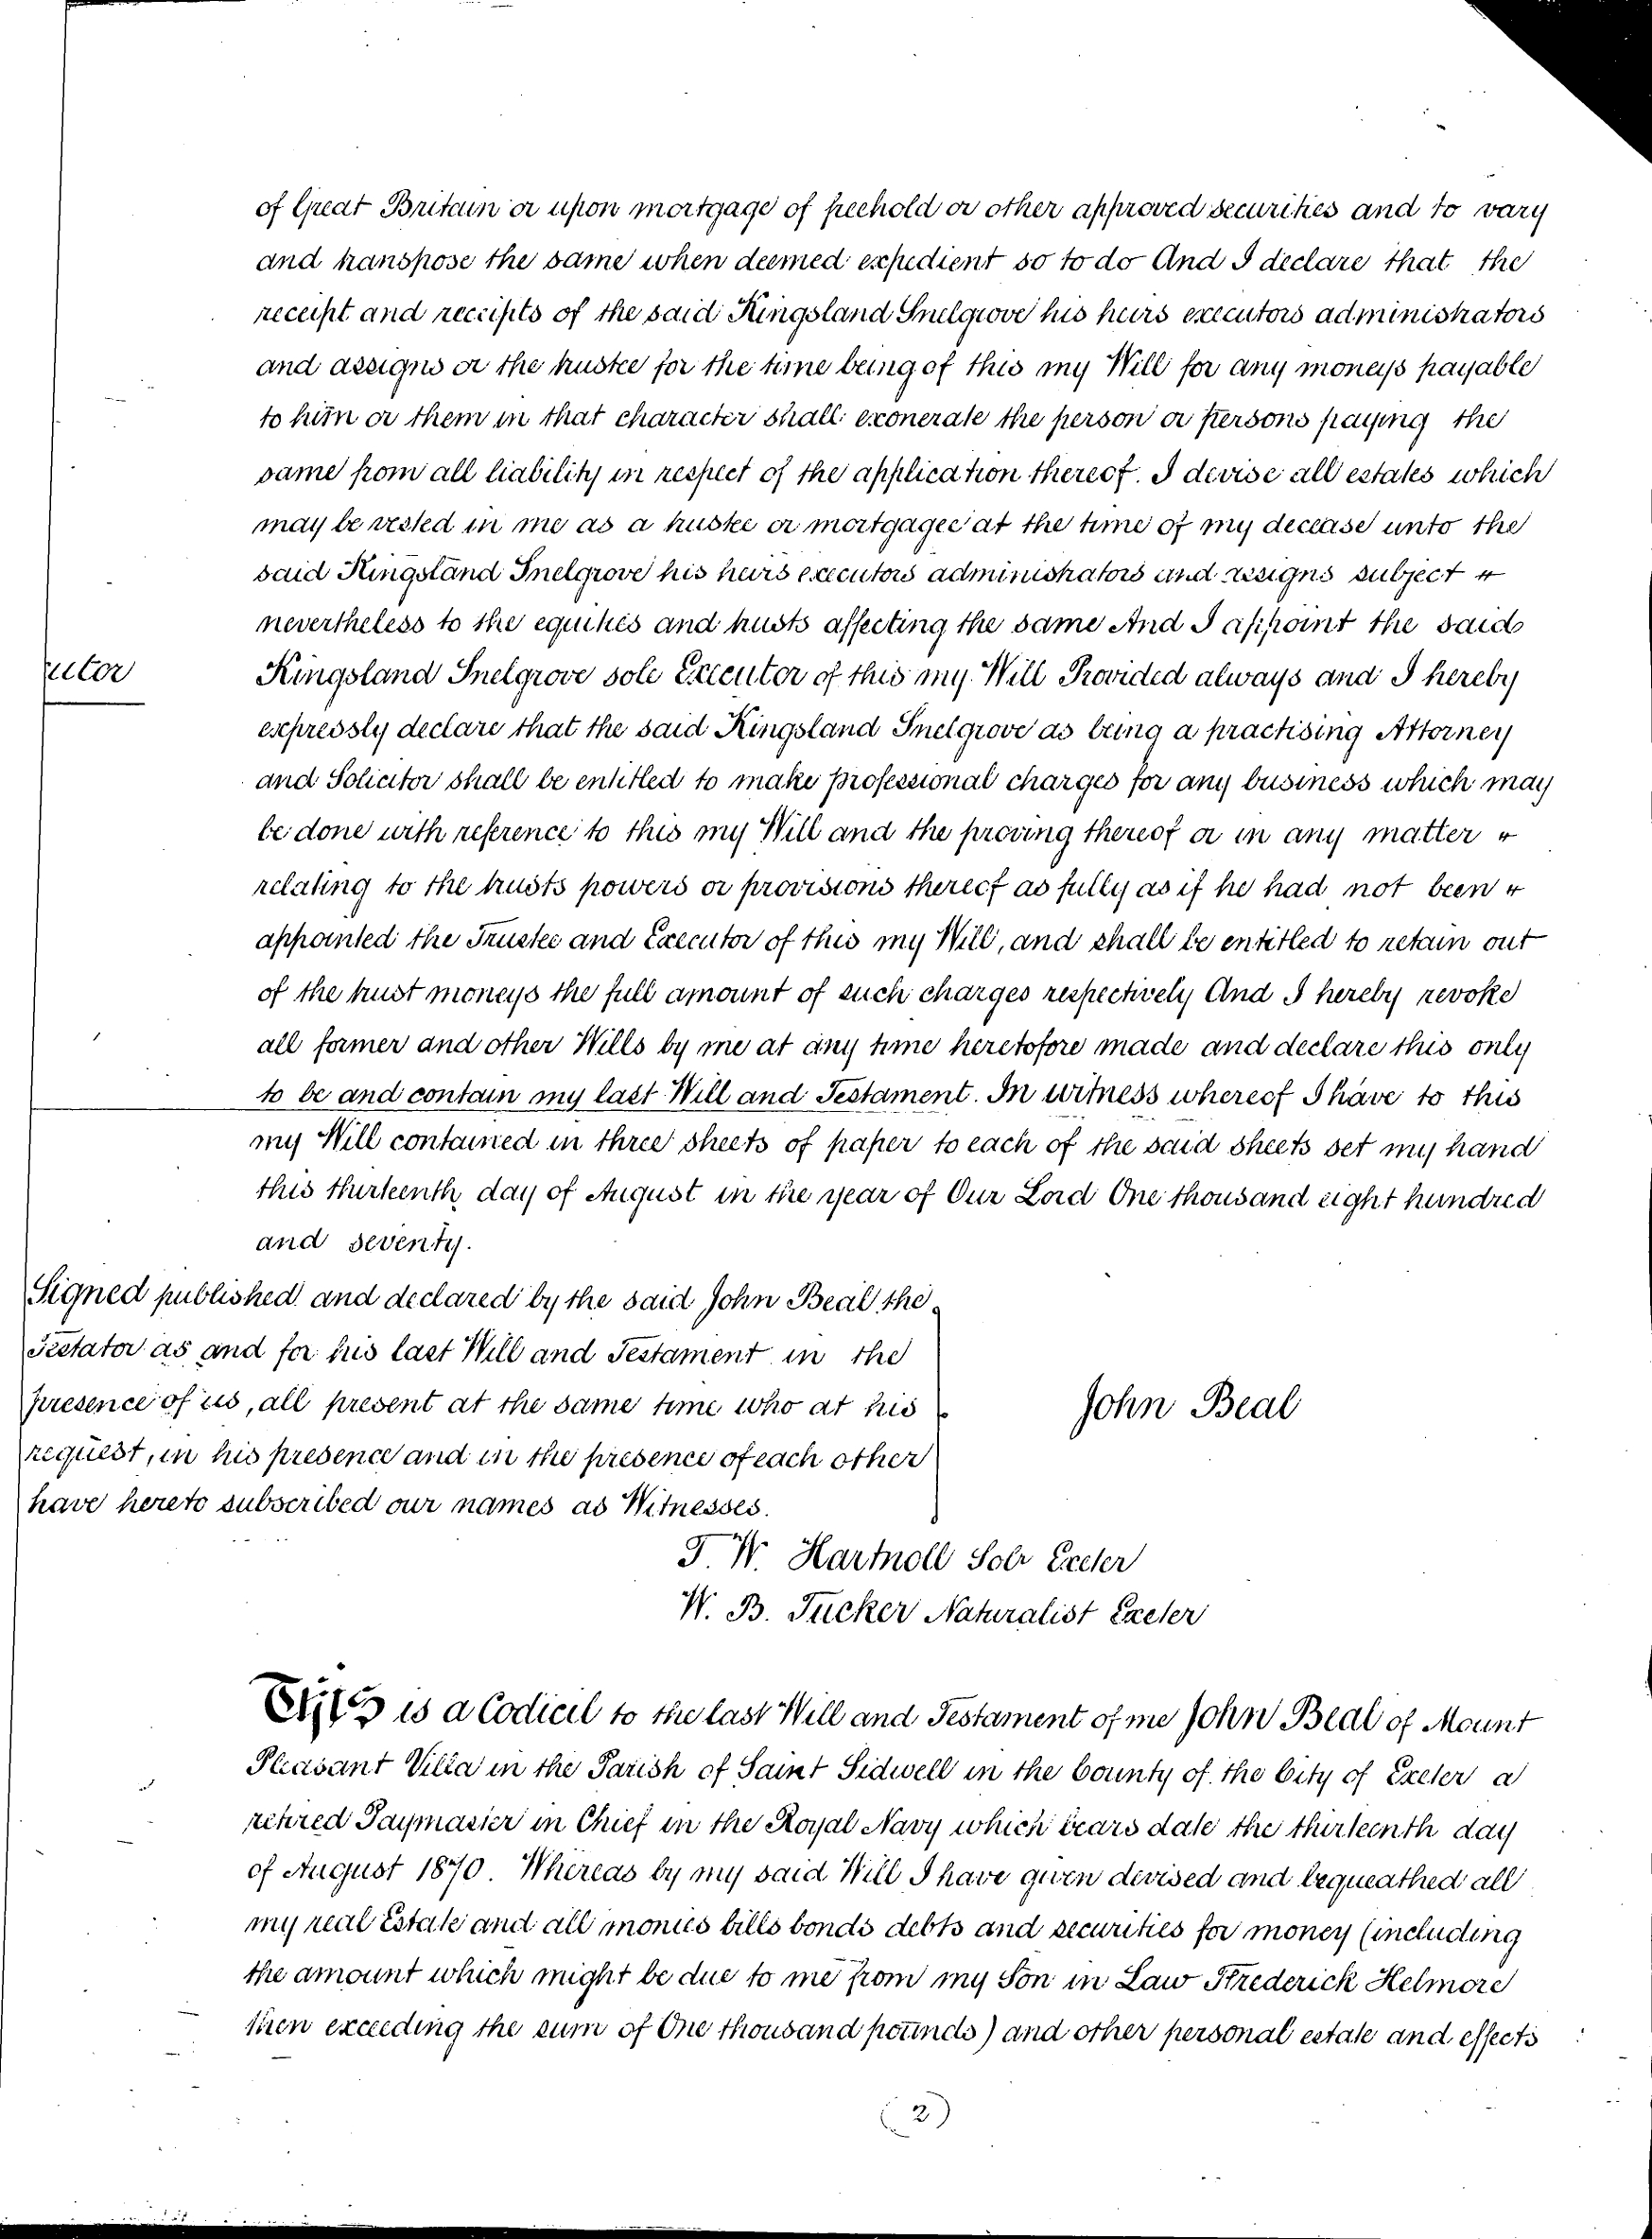 of Great Britain or upon mortgage of freehold or other approved securities and to vary
and transpose the same when deemed expedient so to do And I declare that the
receipt and receipts of the said Kingsland Snelgrove his heirs executors administrators
and assigns or the trustee for the time being of this my Will for any moneys payable
to him or them in that character shall exonerate the person or persons paying the
same from all liability in respect of the application thereof. I devise all estates which
may be vested in me as a trustee or mortgagee at the time of my decease unto the
said Kingsland Snelgrove his heirs executors administrators and assigns subject
nevertheless to the equities and trusts affecting the same And I appoint the said
utor
Kingsland Snelgrove sole Executor of this my Will Provided always and I hereby
expressly declare that the said Kingsland Snelgrove as being a practising Attorney
and Solicitor shall be entitled to make professional charges for any business which may
be done with reference to this my Will and the proving thereof or in any matter
relating to the trusts powers or provisions thereof as fully as if he had not been
appointed the Trustee and Executor of this my Will, and shall be entitled to retain out
of the trust moneys the full amount of such charges respectively And I hereby revoke
all former and other Wills by me at any time heretofore made and declare this only
to be and contain my last Will and Testament. In witness whereof I have to this
my Will contained in three sheets of paper to each of the said sheets set my hand
this thirteenth day of August in the year of Our Lord One thousand eight hundred
and seventy.
Signed published and declared by the said John Beal the
Testator as and for his last Will and Testament in the
presence of us, all present at the same time who at his
John Beal
request, in his presence and in the presence of each other
have hereto subscribed our names as Witnesses.
T. W. Hartnoll Solr Exeter
W. B. Tucker Naturalist Exeter
This is a Codicil to the last Will and Testament of me John Beal of Mount
Pleasant Villa in the Parish of Saint Sidwell in the County of the City of Exeter a
retired Paymaster in Chief in the Royal Navy which bears date the thirteenth day
of August 1870. Whereas by my said Will I have given devised and bequeathed all
my real Estate and all monies bills bonds debts and securities for money (including
the amount which might be due to me from my Son in Law Frederick Helmore
then exceeding the sum of One thousand pounds) and other personal estate and effects
(2)